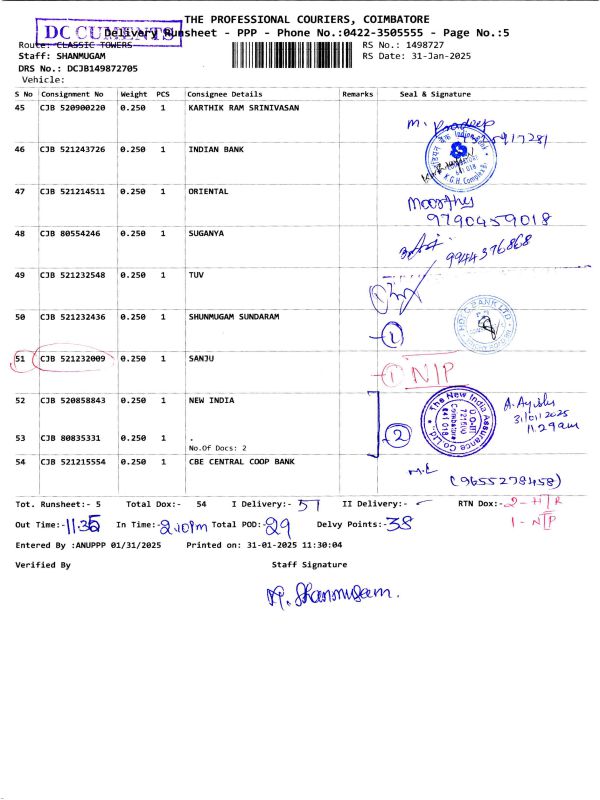 THE PROFESSIONAL COURIERS, COIMBATORE
DOCUMENTS
Delivery Runsheet - PPP - Phone No.:0422-3505555 - Page No.:5
Route: CLASSIC TOWERS
RS No.: 1498727
Staff: SHANMUGAM
RS Date: 31-Jan-2025
DRS No.: DCJB149872705
Vehicle:
S No Consignment No Weight PCS Consignee Details Remarks Seal & Signature
45 CJB 520900220 0.250 1 KARTHIK RAM SRINIVASAN
M. Pradeep
46 CJB 521243726 0.250 1 INDIAN BANK
47 CJB 521214511 0.250 1 ORIENTAL
Moorthy
9790459018
48 CJB 80554246 0.250 1 SUGANYA
9944376868
49 CJB 521232548 0.250 1 TUV
50 CJB 521232436 0.250 1 SHUNMUGAM SUNDARAM
1
51 CJB 521232009 0.250 1 SANJU
1 N/P
52 CJB 520858843 0.250 1 NEW INDIA
The New India Assurance Co Ltd
A. Ayisha
31/01/2025
11.29am
53 CJB 80835331 0.250 1 .
No.Of Docs: 2
2
54 CJB 521215554 0.250 1 CBE CENTRAL COOP BANK
(9655278458)
Tot. Runsheet:- 5 Total Dox:- 54 I Delivery:- 51 II Delivery:- RTN Dox:-2-H/R
Out Time:-11:35 In Time:-2.10pm Total POD:-29 Delvy Points:-38
1-N/P
Entered By :ANUPPP 01/31/2025 Printed on: 31-01-2025 11:30:04
Verified By Staff Signature
M. Shanmugam.